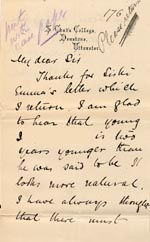 175
Please return
S. Chad's College,
Denstone,
Uttoxeter.
My dear Sir
Thanks for Sister
Emma's letter which
I return. I am glad
to hear that young
I is two
years younger than
he was said to be. It
looks more natural.
I have always thought
that there must